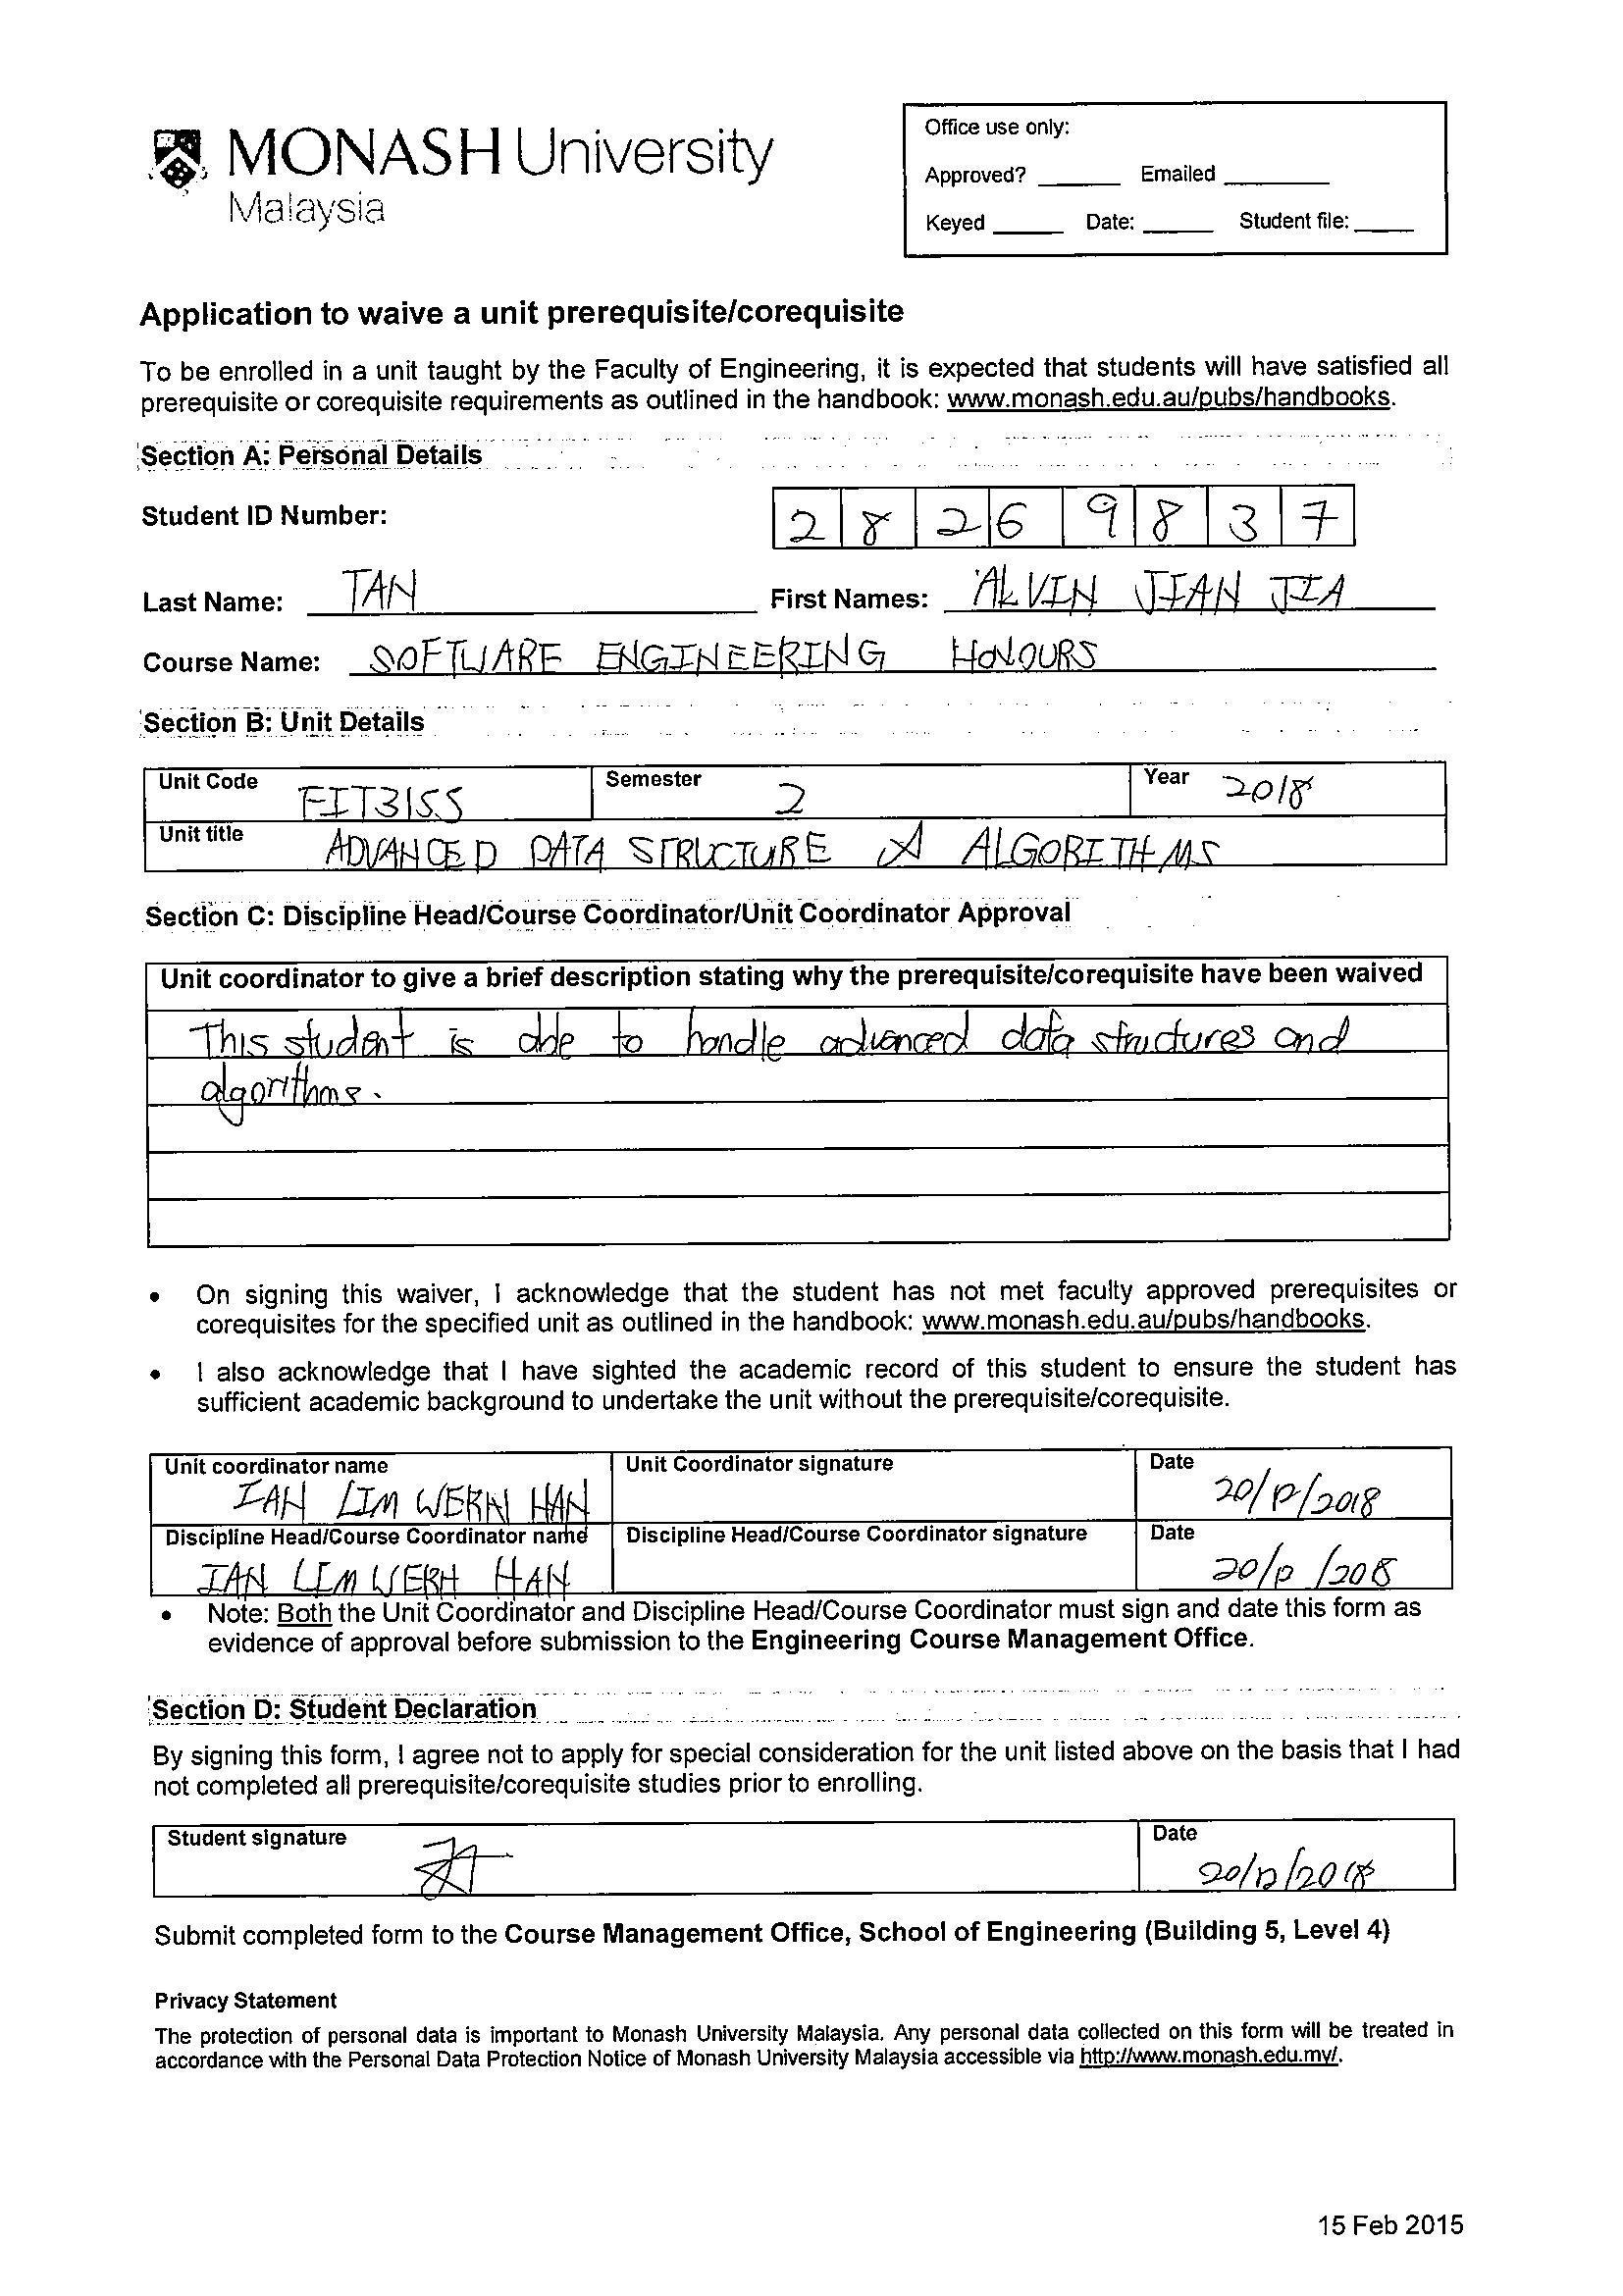 MONASH University
Malaysia
Office use only:
Approved? ______ Emailed ______
Keyed ______ Date: ______ Student file: ______
Application to waive a unit prerequisite/corequisite
To be enrolled in a unit taught by the Faculty of Engineering, it is expected that students will have satisfied all
prerequisite or corequisite requirements as outlined in the handbook: www.monash.edu.au/pubs/handbooks.
Section A: Personal Details
Student ID Number: 2 8 2 6 9 8 3 7
Last Name: TAN First Names: ALVIN JIAN JIA
Course Name: SOFTWARE ENGINEERING HONOURS
Section B: Unit Details
Unit Code FIT3155 Semester 2 Year 2018
Unit title ADVANCED DATA STRUCTURE & ALGORITHMS
Section C: Discipline Head/Course Coordinator/Unit Coordinator Approval
Unit coordinator to give a brief description stating why the prerequisite/corequisite have been waived
This student is able to handle advanced data structures and
algorithms.
• On signing this waiver, I acknowledge that the student has not met faculty approved prerequisites or
corequisites for the specified unit as outlined in the handbook: www.monash.edu.au/pubs/handbooks.
• I also acknowledge that I have sighted the academic record of this student to ensure the student has
sufficient academic background to undertake the unit without the prerequisite/corequisite.
Unit coordinator name Unit Coordinator signature Date
IAN LIM WERN HAN 20/12/2018
Discipline Head/Course Coordinator name Discipline Head/Course Coordinator signature Date
IAN LIM WERN HAN
• Note: Both the Unit Coordinator and Discipline Head/Course Coordinator must sign and date this form as
evidence of approval before submission to the Engineering Course Management Office.
Section D: Student Declaration
By signing this form, I agree not to apply for special consideration for the unit listed above on the basis that I had
not completed all prerequisite/corequisite studies prior to enrolling.
Student signature Date
20/12/2018
Submit completed form to the Course Management Office, School of Engineering (Building 5, Level 4)
Privacy Statement
The protection of personal data is important to Monash University Malaysia. Any personal data collected on this form will be treated in
accordance with the Personal Data Protection Notice of Monash University Malaysia accessible via http://www.monash.edu.my/.
15 Feb 2015